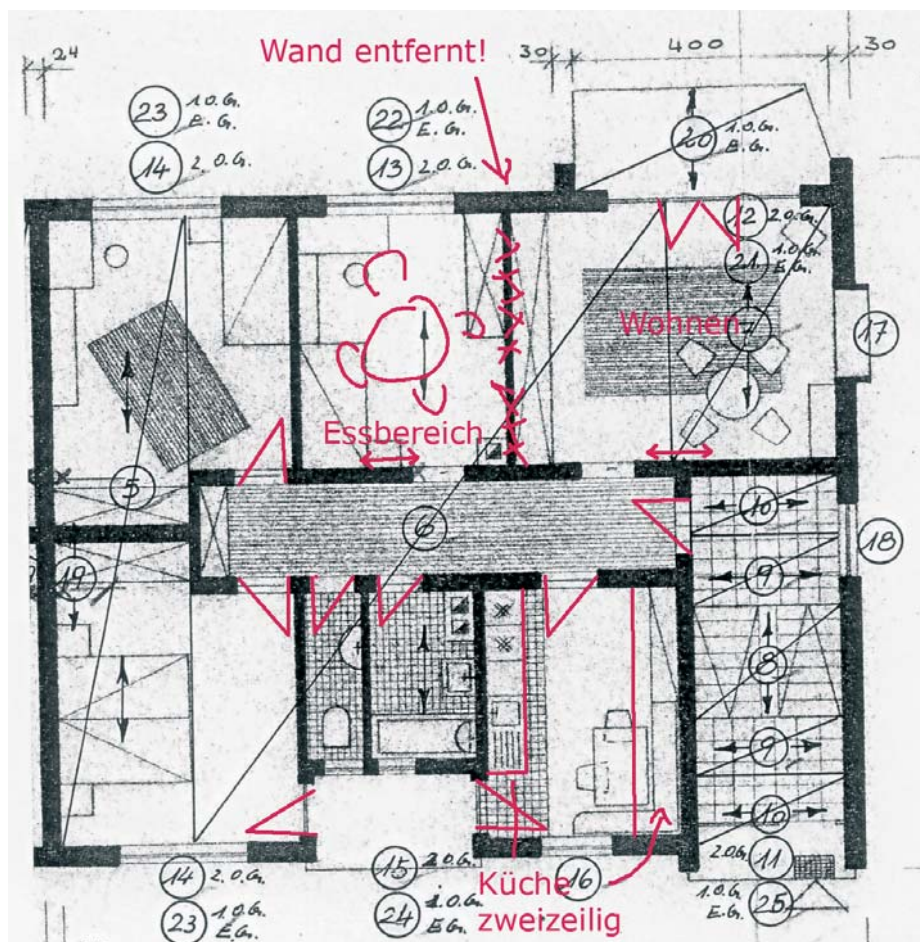 24
Wand entfernt!
30
400
30
23 1.O.G.
E.G.
14 2.O.G.
22 1.O.G.
E.G.
13 2.O.G.
20 1.O.G.
E.G.
12 2.O.G.
21 1.O.G.
E.G.
Wohnen
17
Essbereich
5
6
10
18
19
9
8
9
10
14 2.O.G.
23 1.O.G.
E.G.
15 2.O.G.
24 1.O.G.
E.G.
16
Küche
zweizeilig
2.O.G. 11
1.O.G.
E.G. 25